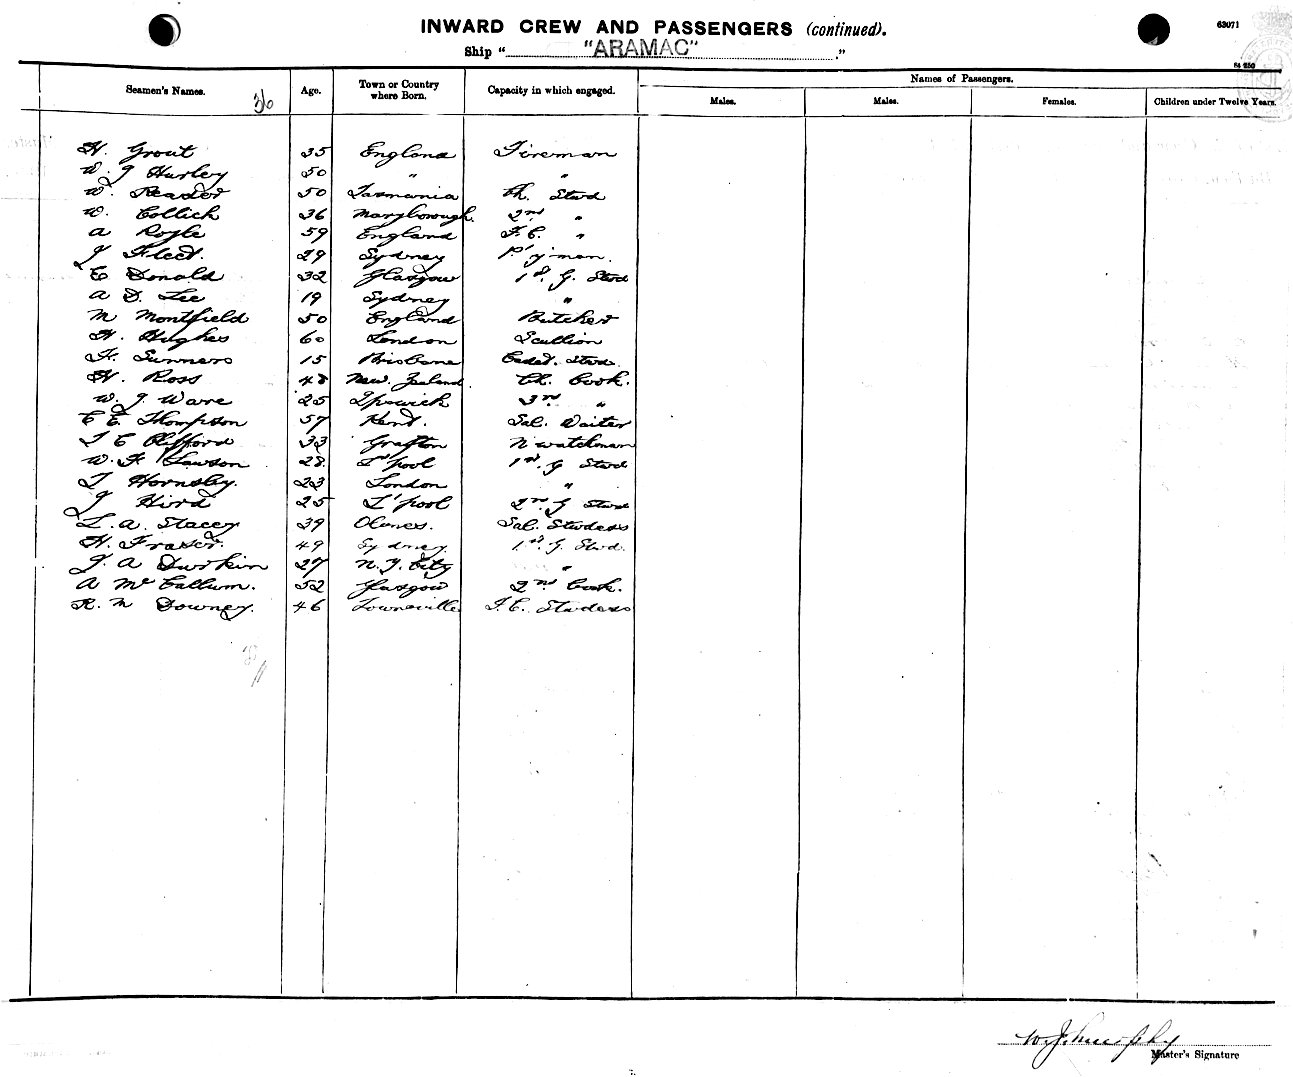 INWARD CREW AND PASSENGERS (continued).
63071
Ship "ARAMAC"
Seamen's Names. Age. Town or Country where Born. Capacity in which engaged. Names of Passengers.
Males. Males. Females. Children under Twelve Years.
H. Grout 35 England Fireman
W. J Hurley 50 " "
W. Reader 50 Tasmania Ch. Stwd
W. Collick 36 Maryborough. 2nd "
A Royle 59 England F.C. "
J Fleet. 29 Sydney P'y'man.
C Donald 32 Glasgow 1st. G. Stwd
A D. Lee 19 Sydney "
M Montfield 50 England Butcher
H. Hughes 60 London Scullion
H. Sumners 15 Brisbane Cadet. Stwd.
H. Ross 48 New. Zealand Ch. Cook.
W. J Ware 25 Ipswich 3rd "
C E. Thompson 57 Kent. Sal. Waiter
T C Clifford 33 Grafton N watchman
W. F Lawson 28. L'pool 1st. G Stwd
T Hornsby. 23 London "
J Hird 25 L'pool 2nd G Stwd
L. A. Stacey 39 Sal. Stwdess
H. Fraser. 49 Sydney 1st. G. Stwd.
J. A Durkin 27 N. Y. City "
A McCallum. 52 Glasgow 2nd Cook.
R. M Downey. 46 Towneville F.C. Stwdess
Master's Signature